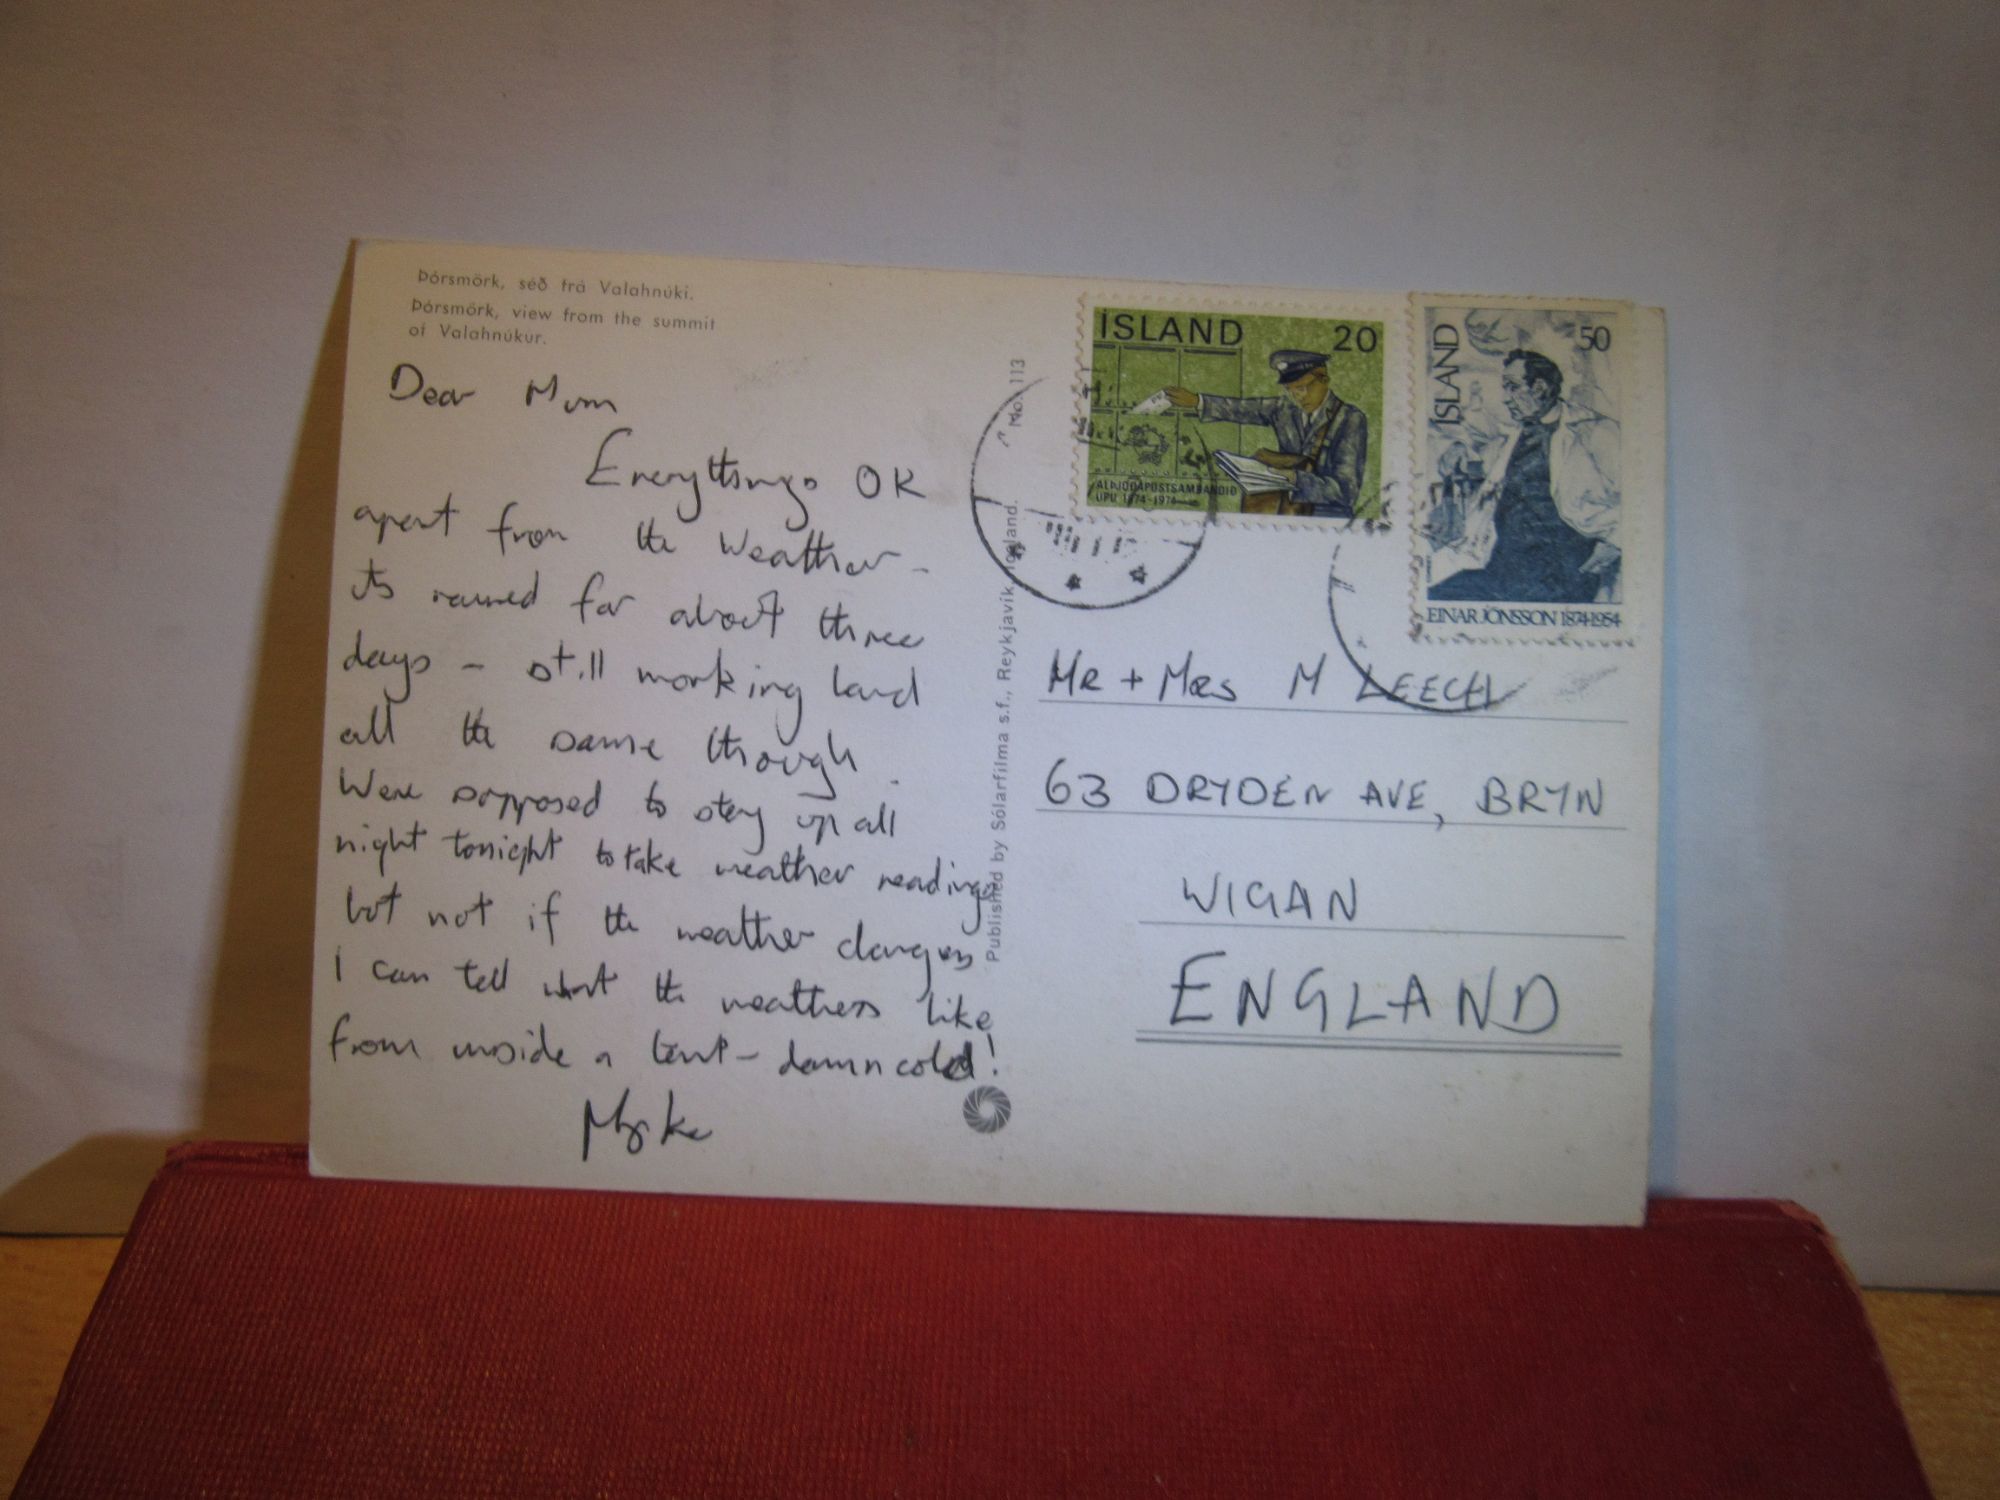 Þórsmörk, séð frá Valahnúki.
Þórsmörk, view from the summit
of Valahnúkur.
Dear Mum
Everythings OK
apart from the weather -
its rained for about three
days - still working hard
all the same though.
Were supposed to stay up all
night tonight to take weather readings
but not if the weather changes
I can tell what the weathers like
from inside a tent - damn cold!
Myke
No. 113
Published by Sólarfilma s.f., Reykjavik
ÍSLAND 20
ALÞJÓÐAPÓSTSAMBANDIÐ
UPU 1874-1974
ÍSLAND 50
EINAR JÓNSSON 1874-1954
MR + MRS M LEECH
63 DRYDEN AVE, BRYN
WIGAN
ENGLAND